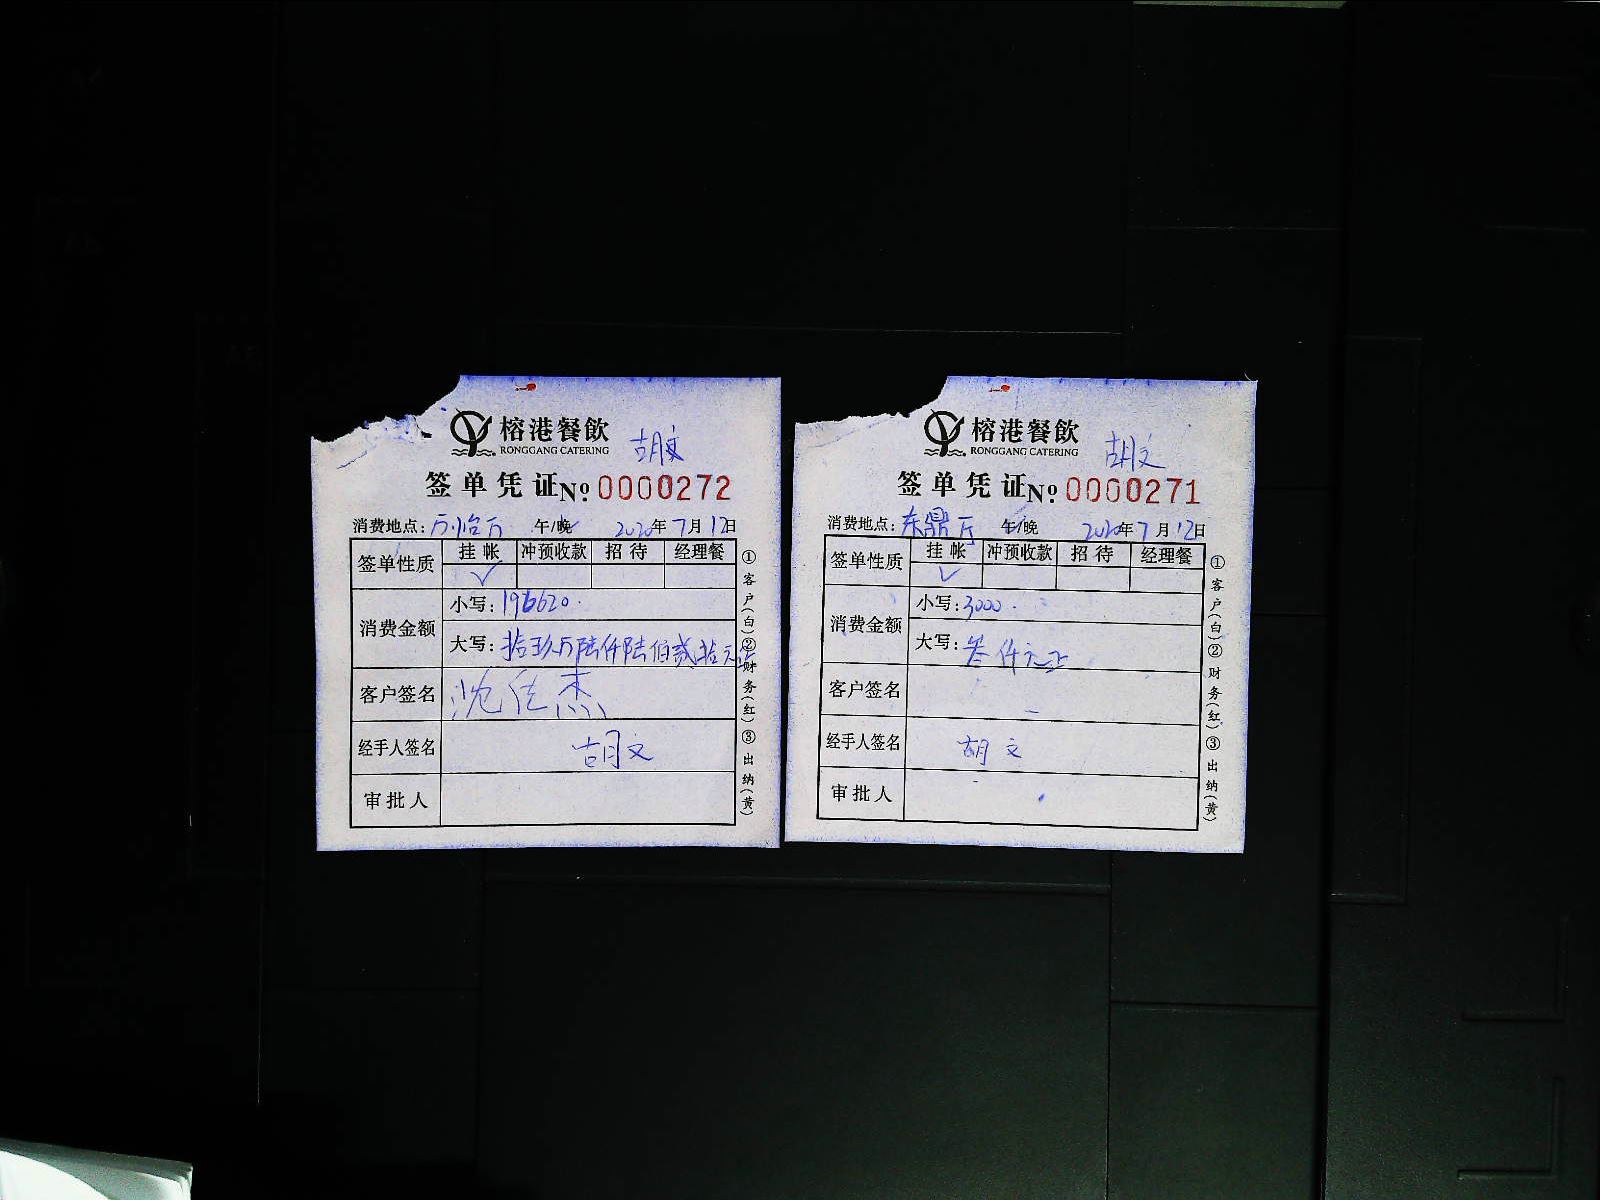 榕港餐飲
RONGGANG CATERING
胡文
签单凭证 № 0000272
消费地点: 厅 午/晚 2020年7月12日
签单性质 挂帐 冲预收款 招待 经理餐
✓
消费金额 小写: 196620.
大写: 拾玖万陆仟陆佰贰拾元正
客户签名 沈佳杰
经手人签名 胡文
审批人
①客户(白)②财务(红)③出纳(黄)
榕港餐飲
RONGGANG CATERING
胡文
签单凭证 № 0000271
消费地点: 东鼎厅 午/晚 2020年7月12日
签单性质 挂帐 冲预收款 招待 经理餐
✓
消费金额 小写: 3000.
大写: 叁仟元正
客户签名
经手人签名 胡文
审批人
①客户(白)②财务(红)③出纳(黄)